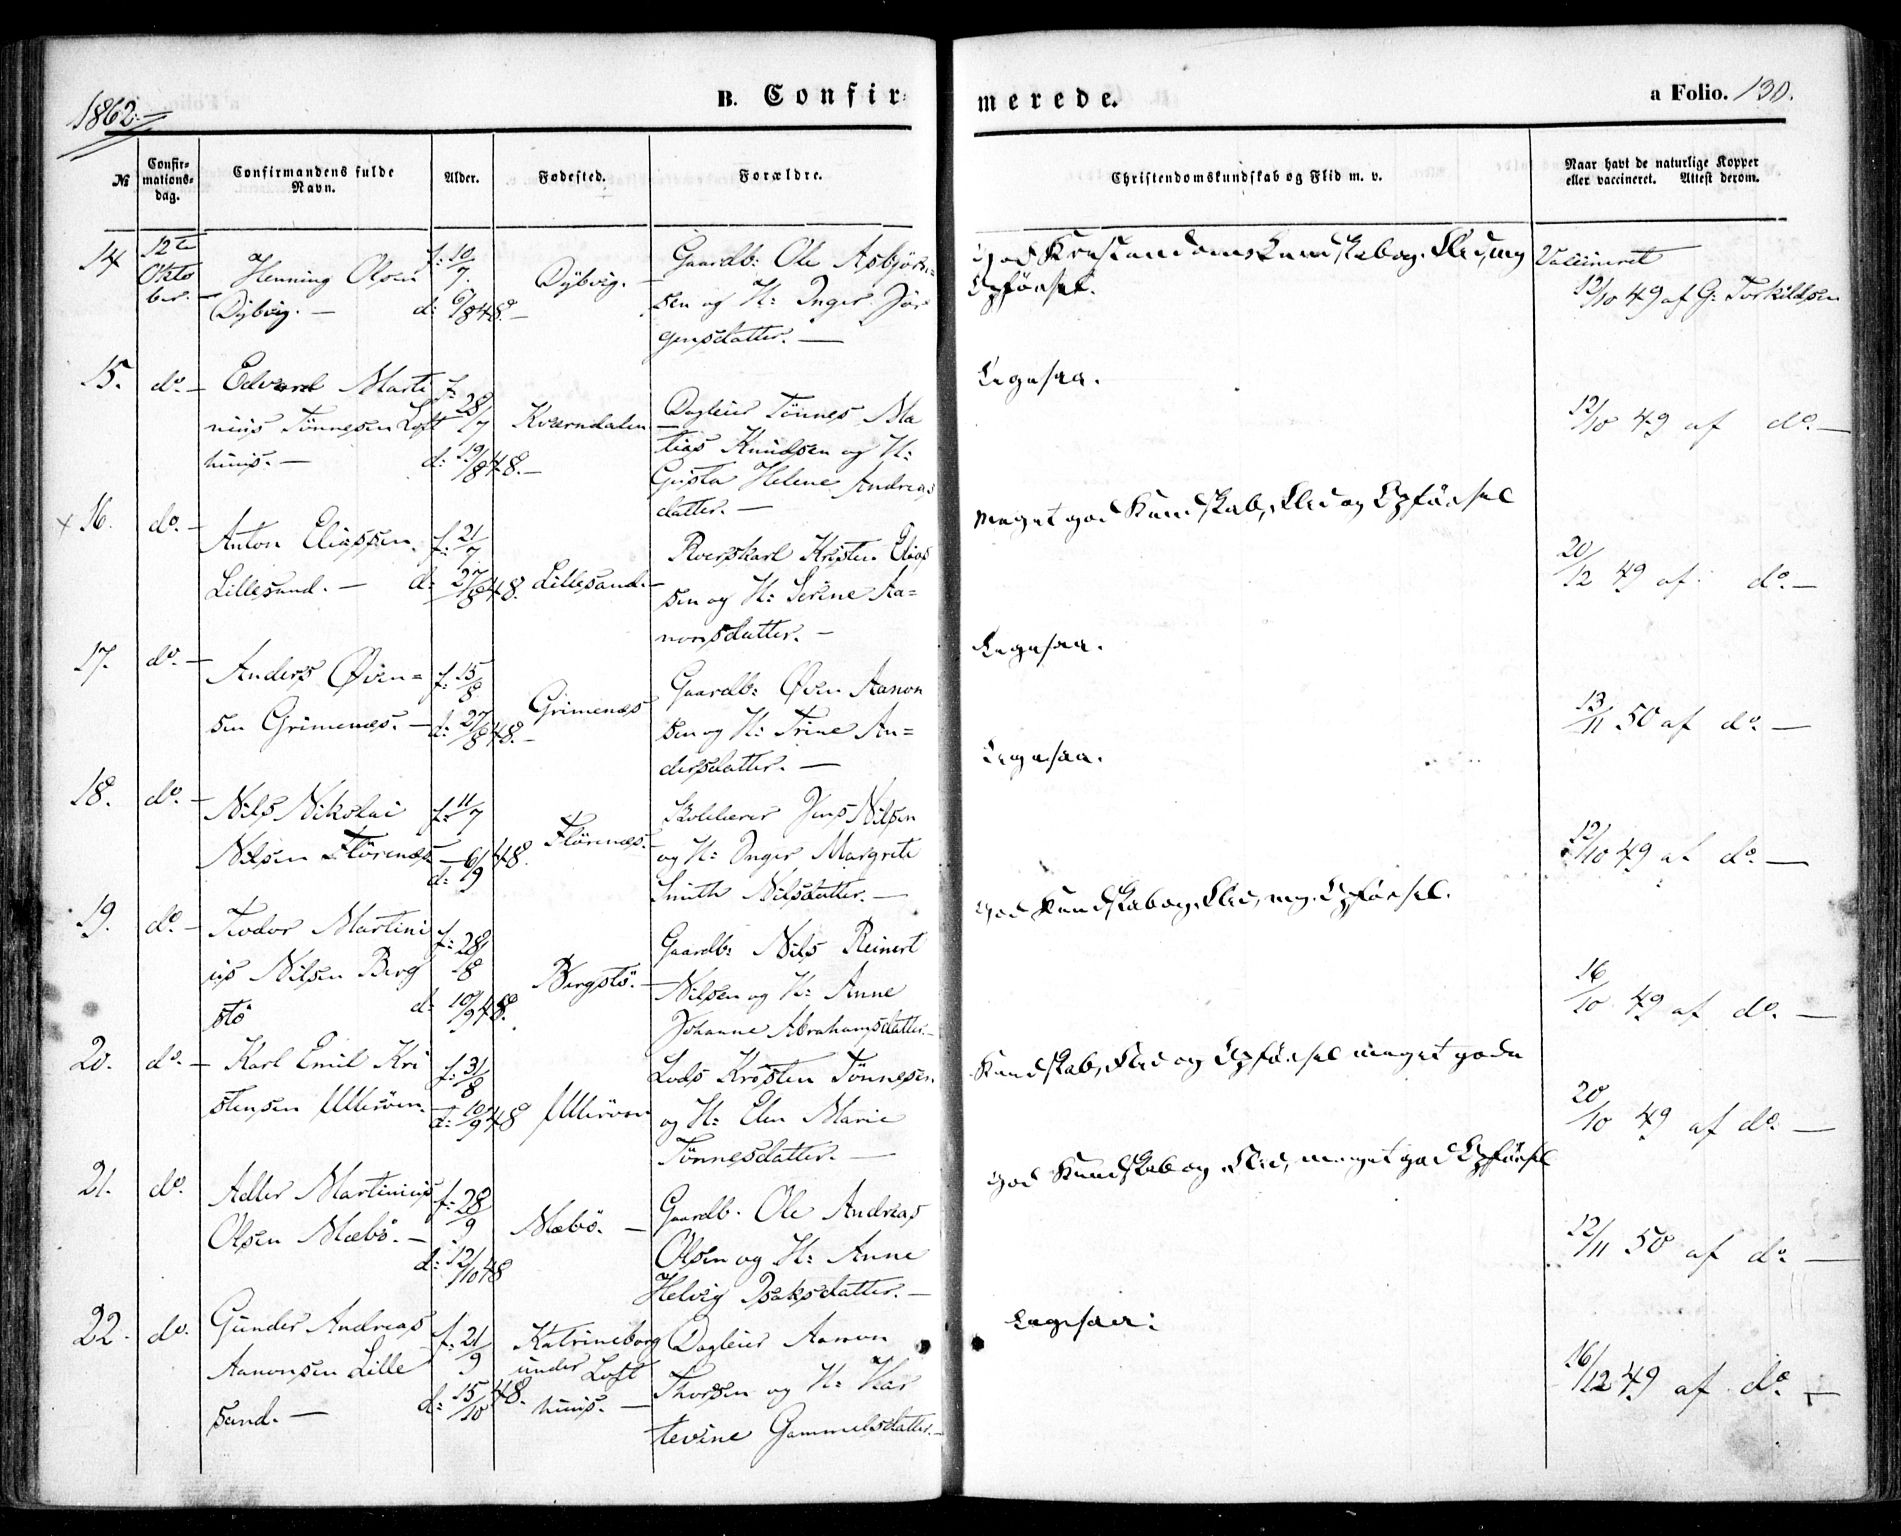 1862.
B. Confir-
merede.
a Folio. 130.
№
Confir-
mations-
dag.
Confirmandens fulde
Navn.
Alder.
Fødested.
Forældre.
Christendomskundskab og Flid m. v.
Naar havt de naturlige Kopper
eller vaccineret. Attest derom.
14
12te
Okto
ber. –
Henning Olsen
Dybvig. –
f: 10/7.
d: 6/8 48. –
Dybvig. –
Gaardb: Ole Asbjörn-
sen og H: Inger Jör
gensdatter. –
God Kristendomskundskab og Flid, mg
Opförsel.
Vaccineret
12/10 49 af G: Torkildsen
15.
do. –
Edvard Marti
nius Tönnesen Loft
huus. –
f: 28/7
d: 19/8 48. –
Kværndalen
Dagleier Tönnes Ma
tias Knudsen og H:
Gusta Helene Andreas
datter. –
Ligesaa.
12/10 49 af do. –
x 16.
do. –
Anton Eliassen
Lillesand. –
f: 21/7
d: 27/8 48.
Lillesand. –
Kristen Elias
sen og H: Serine Aa=
nonsdatter. –
Meget god Kundskab, Flid og Opförsel
20/12 49 af do. –
17.
do. –
Anders Øven=
sen Grimenæs. –
f: 15/8
d: 27/8 48. –
Grimenæs
Gaardb: Øven Aanon
sen og H: Trine An=
dersdatter. –
Ligesaa.
13/11 50 af do. –
18.
do. –
Nils Nikolai
Nilsen Flörenæs
f: 11/7
d: 6/9 48.
Flörenæs. –
Skolelærer Jens Nilsen
og H: Inger Margrete
Smith Nilsdatter. –
Ligesaa.
12/10 49 af do. –
19.
do. –
Teodor Martini
us Nilsen Berg
stö
f: 28/8
d: 10/9 48.
Bergstö. –
Gaardb: Nils Reinert
Nilsen og H: Anne
Johanne Abrahamsdatter. –
God Kundskab og Flid, mg. Opförsel.
16/10 49 af do. –
20.
do. –
Karl Emil Kri
stensen Ulleröen. –
f: 31/8
d: 10/9 48
Ulleröen
Lods Kristen Tönnesen
og H: Elen Marie
Tönnesdatter. –
Kundskab, Flid og Opförsel meget gode
20/10 49 af do. –
21.
do.
Adler Martinius
Olsen Mæbö. –
f: 28/9
d: 12/10 48
Mæbö. –
Gaardb. Ole Andreas
Olsen og H: Anne
Helvig Isaksdatter. –
God Kundskab og Flid, meget god Opförsel
12/11 50 af do. –
22.
do.
Gunder Andreas
Aanonsen Lille
sand. –
f: 21/9
d: 15/10 48.
Katrineborg
under Loft
huus. –
Dagleier Aanon
Thorsen og H: Kar
tevine Gammelsdatter. –
Ligesaa:
16/12 49 af do. –